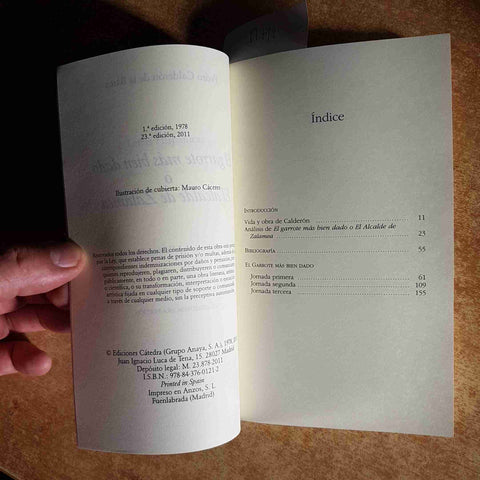 1.ª edición, 1978
23.ª edición, 2011
Ilustración de cubierta: Mauro Cáceres
Reservados todos los derechos. El contenido de esta obra está
por la Ley, que establece penas de prisión y/o multas, además
correspondientes indemnizaciones por daños y perjuicios,
quienes reprodujeren, plagiaren, distribuyeren o comunicaren
públicamente, en todo o en parte, una obra literaria,
o científica, o su transformación, interpretación o
artística fijada en cualquier tipo de soporte o comunicada
a través de cualquier medio, sin la preceptiva autorización.
© Ediciones Cátedra (Grupo Anaya, S. A.), 1978,
Juan Ignacio Luca de Tena, 15. 28027 Madrid
Depósito legal: M. 23.878-2011
I.S.B.N.: 978-84-376-0121-2
Printed in Spain
Impreso en Anzos, S. L.
Fuenlabrada (Madrid)
Índice
INTRODUCCIÓN
Vida y obra de Calderón 11
Análisis de El garrote más bien dado o El Alcalde de
Zalamea 23
BIBLIOGRAFÍA 55
EL GARROTE MÁS BIEN DADO
Jornada primera 61
Jornada segunda 109
Jornada tercera 155